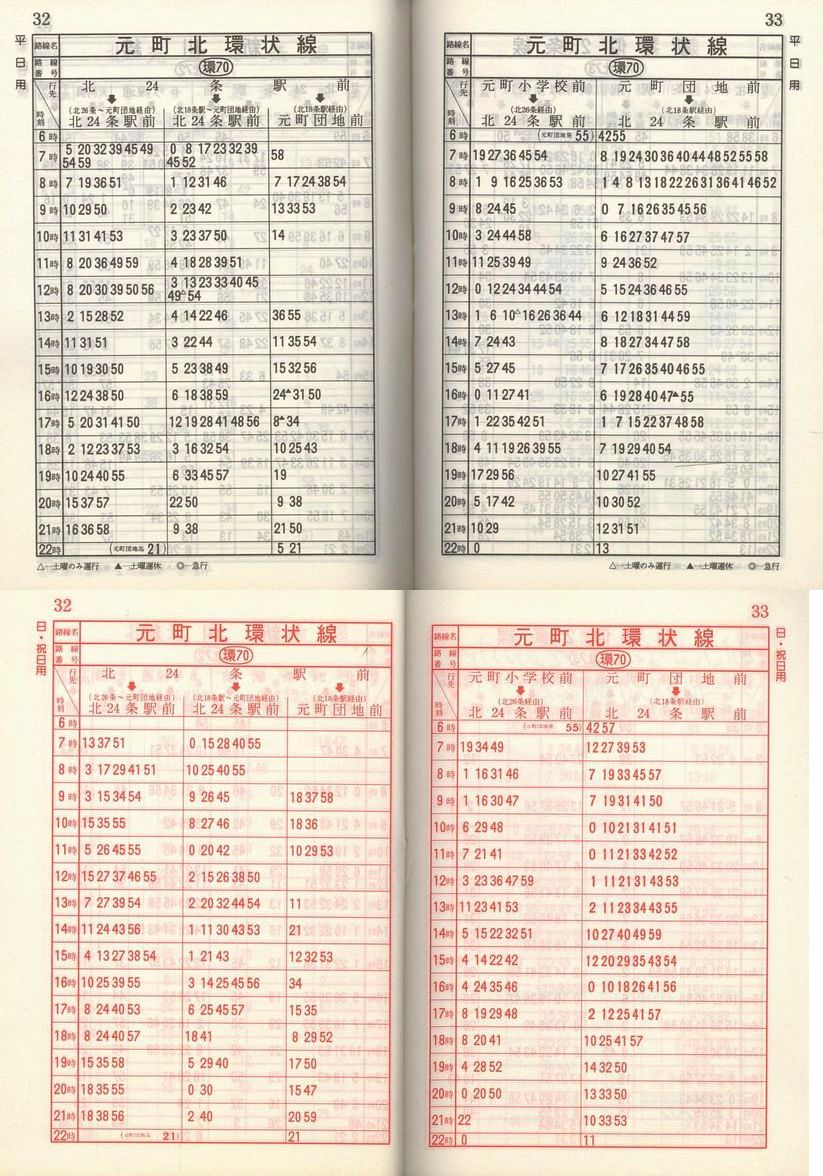 32
平日用
路線名 元町北環状線
路線番号 環70
行先 時刻 北24条駅前
(北26条～元町団地経由) (北18条駅～元町団地経由) (北18条駅経由)
北24条駅前 北24条駅前 元町団地前
6時
7時 5 20 32 39 45 49 54 59 0 8 17 23 32 39 45 52 58
8時 7 19 36 51 1 12 31 46 7 17 24 38 54
9時 10 29 50 2 23 42 13 33 53
10時 11 31 41 53 3 23 37 50 14
11時 8 20 36 49 59 4 18 28 39 51
12時 8 20 30 39 50 56 3 13 23 33 40 45 49△54
13時 2 15 28 52 4 14 22 46 36 55
14時 11 31 51 3 22 44 11 35 54
15時 10 19 30 50 5 23 38 49 15 32 56
16時 12 24 38 50 6 18 38 59 24▲31 50
17時 5 20 31 41 50 12 19 28 41 48 56 8▲34
18時 2 12 23 37 53 3 16 32 54 10 25 43
19時 10 24 40 55 6 33 45 57 19
20時 15 37 57 22 50 9 38
21時 16 36 58 9 38 21 50
22時 (元町団地迄 21) 5 21
△…土曜のみ運行 ▲…土曜運休 ◎…急行
33
平日用
路線名 元町北環状線
路線番号 環70
行先 時刻 元町小学校前 元町団地前
(北26条経由) (北18条駅経由)
北24条駅前 北24条駅前
6時 (元町団地発 55) 42 55
7時 19 27 36 45 54 8 19 24 30 36 40 44 48 52 55 58
8時 1 9 16 25 36 53 1 4 8 13 18 22 26 31 36 41 46 52
9時 8 24 45 0 7 16 26 35 45 56
10時 3 24 44 58 6 16 27 37 47 57
11時 11 25 39 49 9 24 36 52
12時 0 12 24 34 44 54 5 15 24 36 46 55
13時 1 6 10△16 26 36 44 6 12 18 31 44 59
14時 7 24 43 8 18 27 34 47 58
15時 5 27 45 7 17 26 35 40 46 55
16時 0 11 27 41 6 19 28 40 47▲55
17時 1 22 35 42 51 1 7 15 22 37 48 58
18時 4 11 19 26 39 55 7 19 29 40 54
19時 17 29 56 10 27 41 55
20時 5 17 42 10 30 52
21時 10 29 12 31 51
22時 0 13
△…土曜のみ運行 ▲…土曜運休 ◎…急行
32
日・祝日用
路線名 元町北環状線
路線番号 環70
行先 時刻 北24条駅前
(北26条～元町団地経由) (北18条駅～元町団地経由) (北18条駅経由)
北24条駅前 北24条駅前 元町団地前
6時
7時 13 37 51 0 15 28 40 55
8時 3 17 29 41 51 10 25 40 55
9時 3 15 34 54 9 26 45 18 37 58
10時 15 35 55 8 27 46 18 36
11時 5 26 45 55 0 20 42 10 29 53
12時 15 27 37 46 55 2 15 26 38 50
13時 7 27 39 54 2 20 32 44 54 11
14時 11 24 43 56 1 11 30 43 53 21
15時 4 13 27 38 54 1 21 43 12 32 53
16時 10 25 39 55 3 14 25 45 56 34
17時 8 24 40 53 6 25 45 57 15 35
18時 8 24 40 57 18 41 8 29 52
19時 15 35 58 5 29 40 17 50
20時 18 35 55 0 30 15 47
21時 18 38 56 2 40 20 59
22時 (元町団地迄 21) 21
33
日・祝日用
路線名 元町北環状線
路線番号 環70
行先 時刻 元町小学校前 元町団地前
(北26条経由) (北18条駅経由)
北24条駅前 北24条駅前
6時 (元町団地発 55) 42 57
7時 19 34 49 12 27 39 53
8時 1 16 31 46 7 19 33 45 57
9時 1 16 30 47 7 19 31 41 50
10時 6 29 48 0 10 21 31 41 51
11時 7 21 41 0 11 21 33 42 52
12時 3 23 36 47 59 1 11 21 31 43 53
13時 11 23 41 53 2 11 23 34 43 55
14時 5 15 22 32 51 10 27 40 49 59
15時 4 14 22 42 12 20 29 35 43 54
16時 4 24 35 46 0 10 18 26 41 56
17時 8 19 29 48 2 12 25 41 57
18時 8 20 41 10 25 41 57
19時 4 28 52 14 32 50
20時 0 20 50 13 33 50
21時 22 10 33 53
22時 0 11